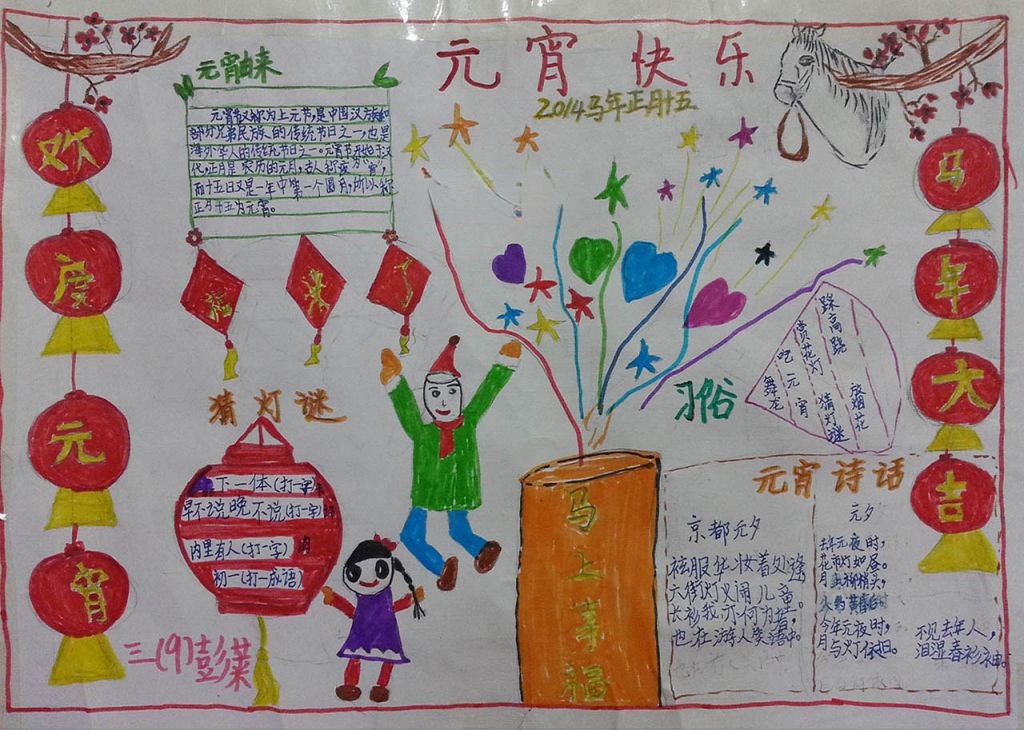 元宵快乐
2014马年正月十五
欢
度
元
宵
马
年
大
吉
元宵由来
元宵又称为上元节,是中国汉族和
部分兄弟民族的传统节日之一,也是
海外华人的传统节日之一。元宵节形成于汉
代,正月是农历的元月,古人称夜为"宵",
而十五日又是一年中第一个圆月,所以称
正月十五为元宵。
福
来
了
猜灯谜
下一体(打一字)
早不说晚不说(打一字)
内里有人(打一字)
初一(打一成语)
三(9)彭菜
马
上
幸
福
习俗
踩高跷
赏花灯
吃元宵
舞龙
放烟花
猜灯谜
元宵诗话
京都元夕
袨服华妆着处逢
六街灯火闹儿童。
长衫我亦何为者,
也在游人笑语中。
元夕
去年元夜时,
花市灯如昼。
月上柳梢头,
人约黄昏后
今年元夜时,
月与灯依旧。
不见去年人,
泪湿春衫袖。